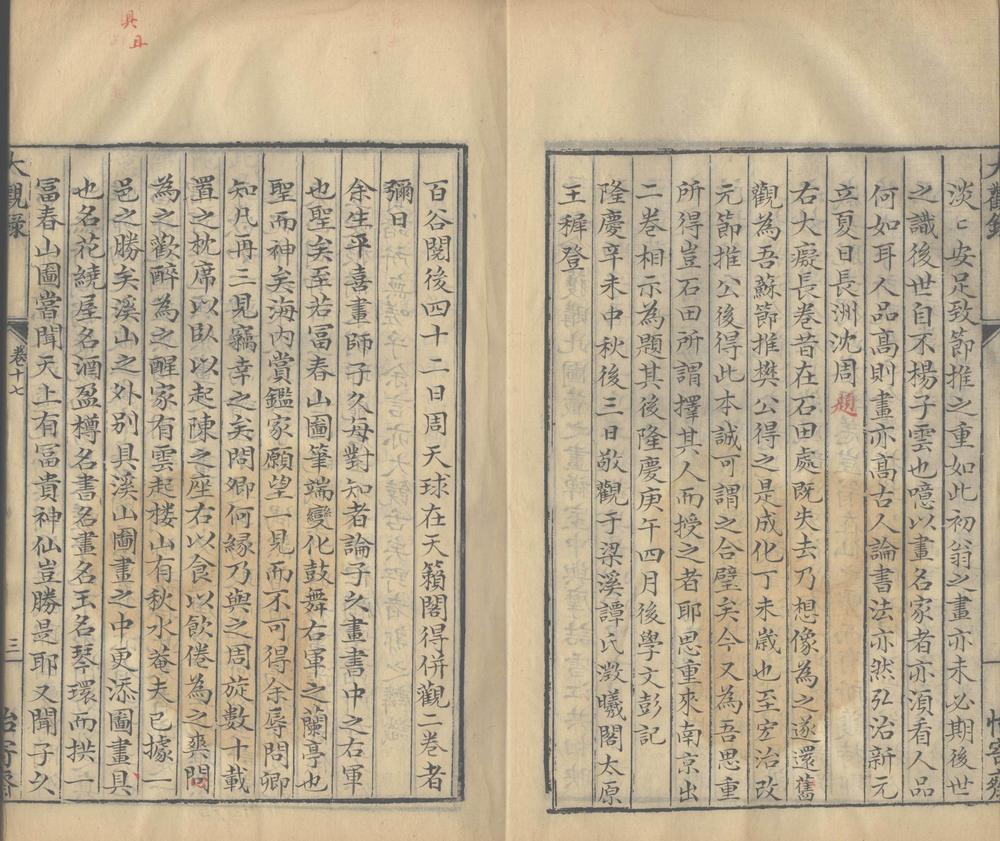 淡〻安足致節推之重如此初翁之畫亦未必期後世
之識後世自不楊子雲也噫以畫名家者亦須看人品
何如耳人品高則畫亦高古人論書法亦然弘治新元
立夏日長洲沈周題
右大癡長卷昔在石田處既失去乃想像為之遂還舊
觀為吾蘇節推樊公得之是成化丁未歲也至宏治改
元節推公後得此本誠可謂之合璧矣今又為吾思重
所得豈石田所謂擇其人而授之者耶思重來南京出
二卷相示為題其後隆慶庚午四月後學文彭記
隆慶辛未中秋後三日敬觀于梁溪譚氏澂曦閣太原
王穉登
百谷閱後四十二日周天球在天籟閣得併觀二卷者
彌日
余生平喜畫師子久每對知者論子久畫書中之右軍
也聖矣至若冨春山圖筆端變化鼓舞右軍之蘭亭也
聖而神矣海內賞鑑家願望一見而不可得余辱問卿
知凡再三見竊幸之矣問卿何緣乃與之周旋數十載
置之枕席以臥以起陳之座右以食以飲倦為之爽問
為之歡醉為之醒家有雲起樓山有秋水菴夫已據一
邑之勝矣溪山之外別具溪山圖畫之中更添圖畫具
也名花繞屋名酒盈樽名書名畫名玉名琴環而拱一
冨春山圖嘗聞天上有冨貴神仙豈勝是耶又聞子久
大觀錄
卷十七
三